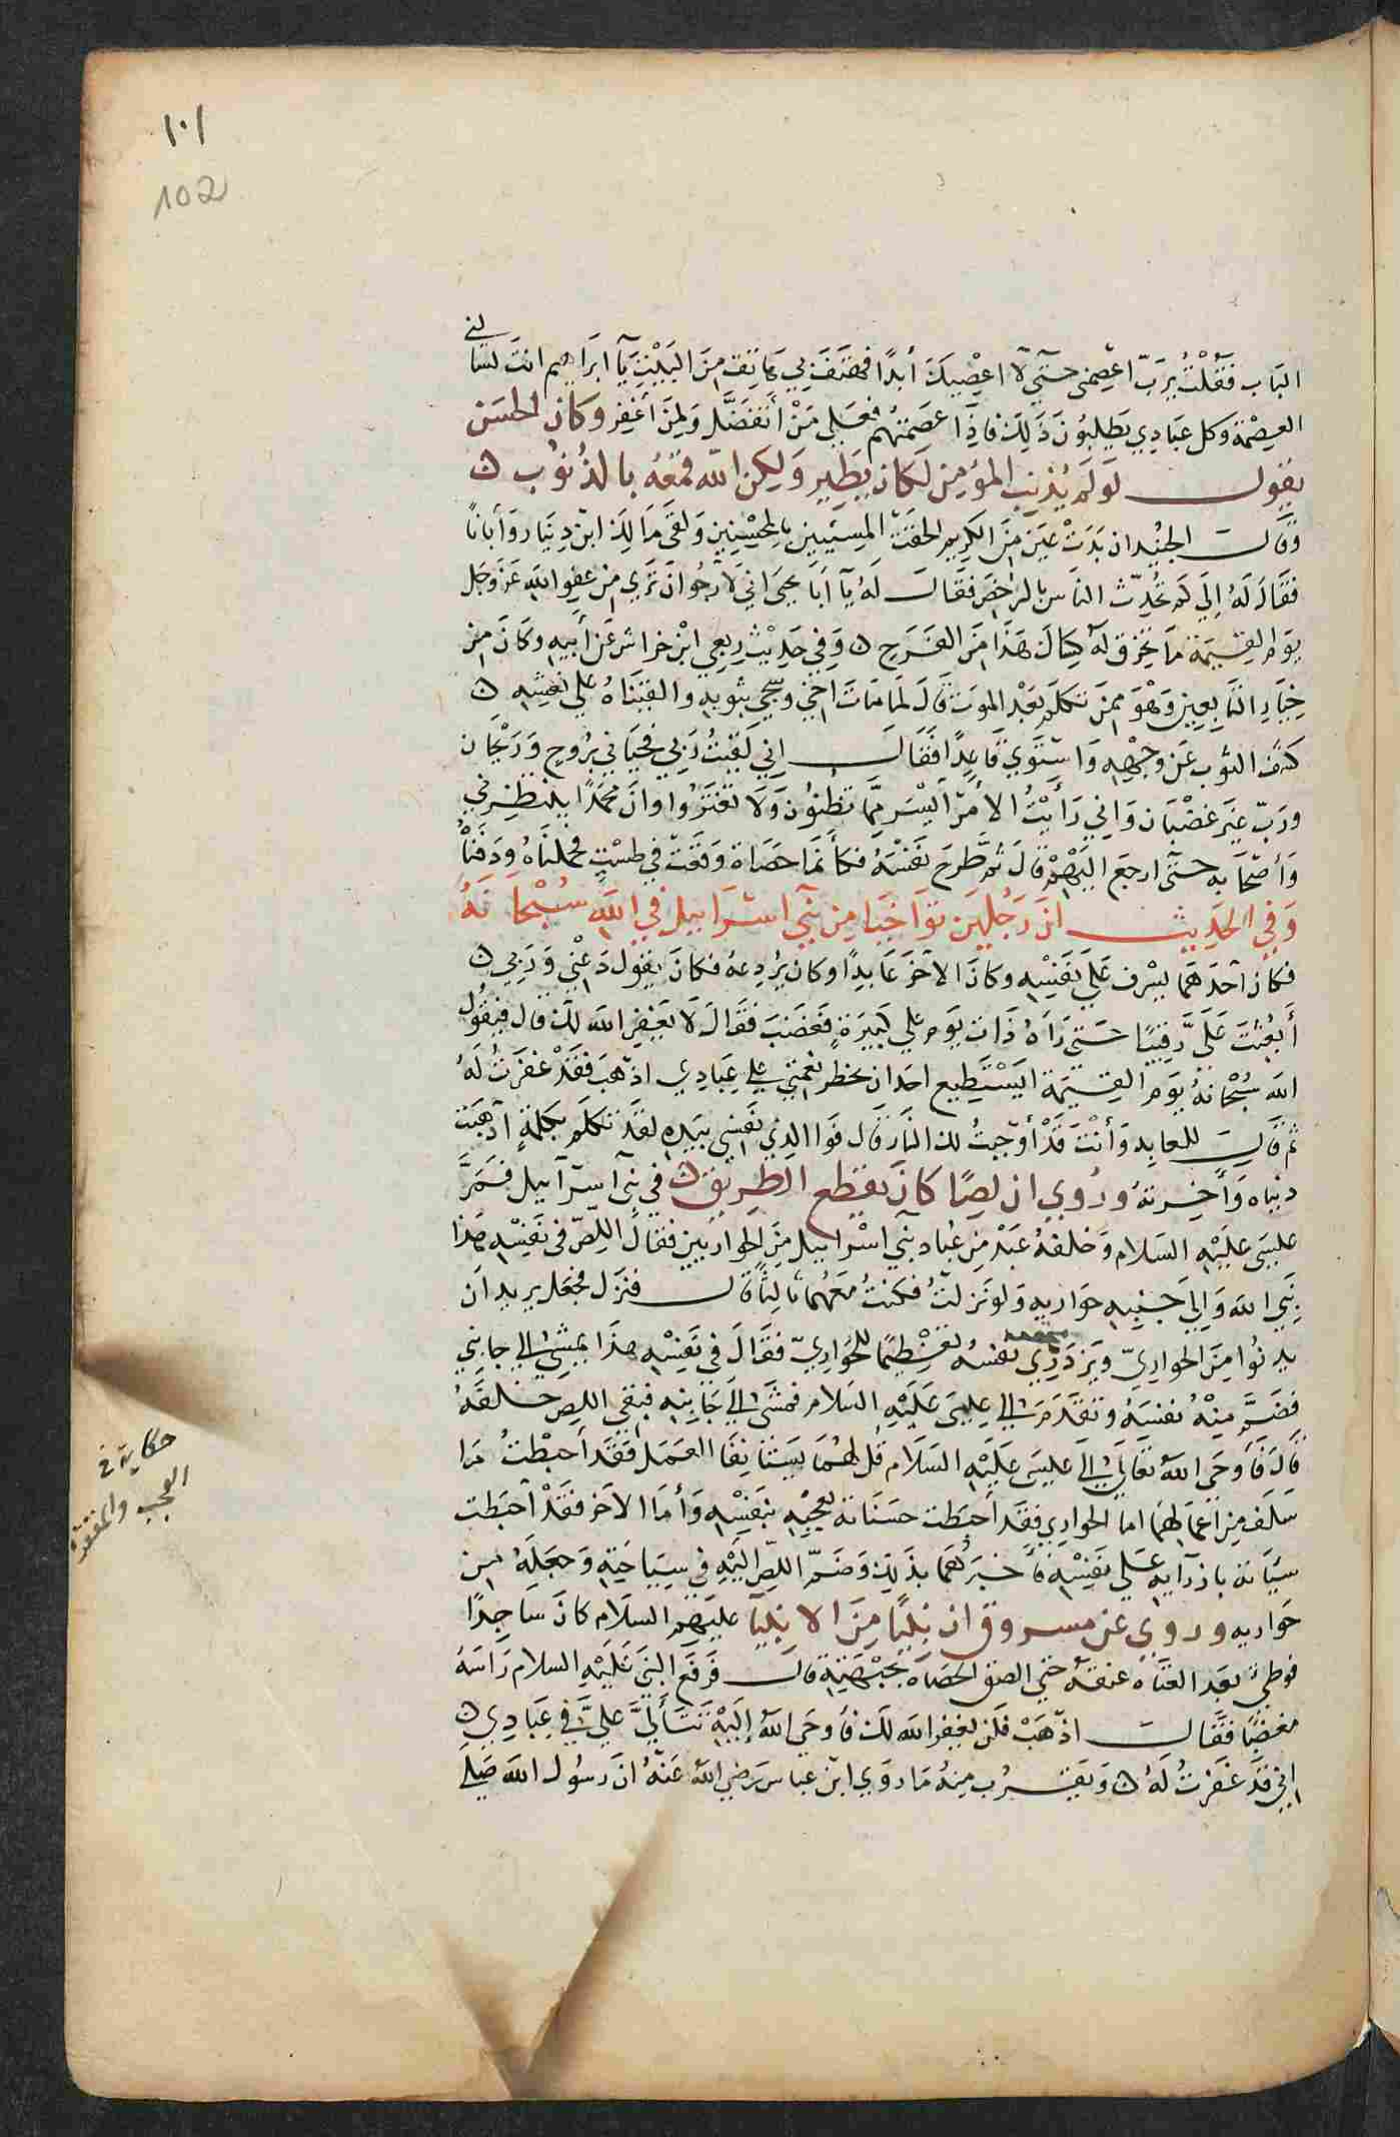 ١٠١
102
الباب فقلت يرب اعصمني حتى لا اعصيك أبدا فهتف بي هاتف من البيت يا ابراهيم انت تسالني
العصمة وكل عبادي يطلبون ذلك فاذا عصمتهم فعلي من أتفضل ولمن أغفر وكان الحسن
يقول لو لم يذنب المؤمن لكان يطير ولكن الله قمعه بالذنوب ن
وقال الجنيد ان بدت عين من الكريم الحقت المسيئين بالمحسنين ولقي مالك ابن دينار وأبانا
فقال له الى كم تحدث الناس بالرخص فقال له يا أبا يحيى اني لارجوا ان ترى من عفو الله عز وجل
يوم القيمة ما تخرق له كساك هذا من الفرح ن وفي حديث ربعي ابن خراش عن أبيه وكان من
خيار التابعين وهو ممن تكلم بعد الموت قال لما مات اخي وسجي بثوبه والقيناه على نعشه ن
كشف الثوب عن وجهه واستوى قاعدا فقال اني لقيت ربي فحياني بروح وريحان
ورب غير غضبان واني رأيت الأمر أيسر مما تظنون ولا تغتروا وان محمدا ينتظرني
وأصحابه حتى ارجع اليهم قال ثم طرح نفسه فكأنما حصاة وقعت في طست فحملناه ودفناه
وفي الحديث ان رجلين تواخيا من بني اسرائيل في الله سبحانه
فكان احدهما يسرف على نفسه وكان الآخر عابدا وكان يردعه فكان يقول دعني وربي ن
أبعثت علي رقيبا حتى رآه ذات يوم على كبيرة فغضب فقال لا يغفر الله لك قال فيقول
الله سبحانه يوم القيمة ايستطيع احد ان يحظر نعمتي على عبادي اذهب فقد غفرت له
ثم قال للعابد وأنت قد أوجبت لك النار قال فوالذي نفسي بيده لقد تكلم بكلمة أذهبت
دنياه وأخرته وروي ان لصا كان يقطع الطريق ن في بني اسرآئيل فمر
عليه عيسى عليه السلام وخلفه عبد من عباد بني اسرائيل من الحواريين فقال اللص في نفسه هذا
نبي الله والى جنبه حواريه ولو نزلت فكنت معهما ثالثا قال فنزل فجعل يريد ان
يدنوا من الحواري ويزدري نفسه تعظيما للحواري فقال في نفسه هذا يمشي الى جانبي
فضم منه نفسه وتقدم الى عيسى عليه السلام فمشى الى جانبه فبقي اللص خلفه
قال فأوحى الله تعالى الى عيسى عليه السلام قل لهما يستانفا العمل فقد احبطت ما
سلف من أعمالهما اما الحواري فقد أحبطت حسناته لعجبه بنفسه وأما الآخر فقد أحبطت
سيأته بازدرآيه على نفسه فأخبرهما بذلك وضم اللص اليه في سياحته وجعله من
حواريه وروي عن مسروق ان نبيا من الانبيآ عليهم السلام كان ساجدا
فوطئ بعض العتاه عنقه حتى الصق الحصاه بجبهته قال فرفع النبي عليه السلام رأسه
مغضبا فقال اذهب فلن يغفر الله لك فأوحى الله إليه تتألى علي في عبادي ن
اني قد غفرت له ن ويقرب منه ما روي ابن عباس رضي الله عنه ان رسول الله صلى
حكاية في
العجب والمقت